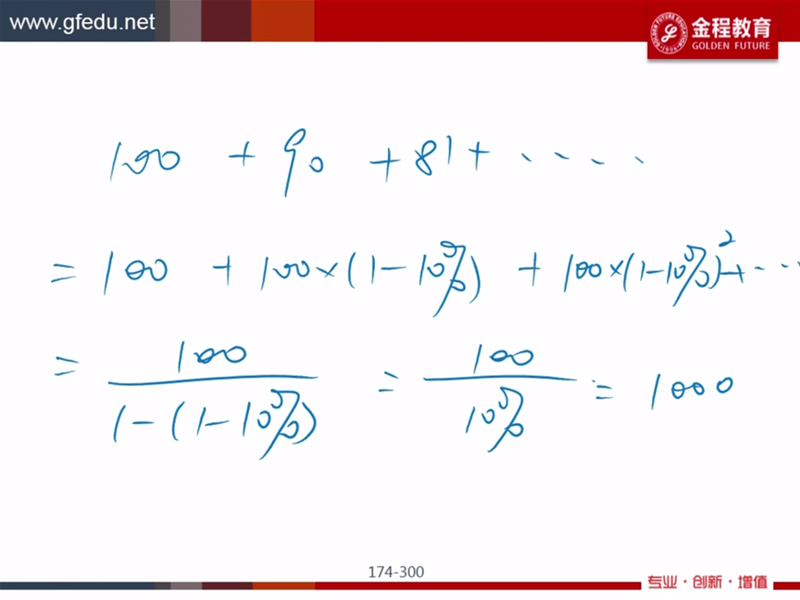 www.gfedu.net
金程教育
GOLDEN FUTURE
100 + 90 + 81 + ....
= 100 + 100×(1-10%) + 100×(1-10%)² + ...
= 100 / 1-(1-10%) = 100 / 10% = 1000
174-300
专业·创新·增值